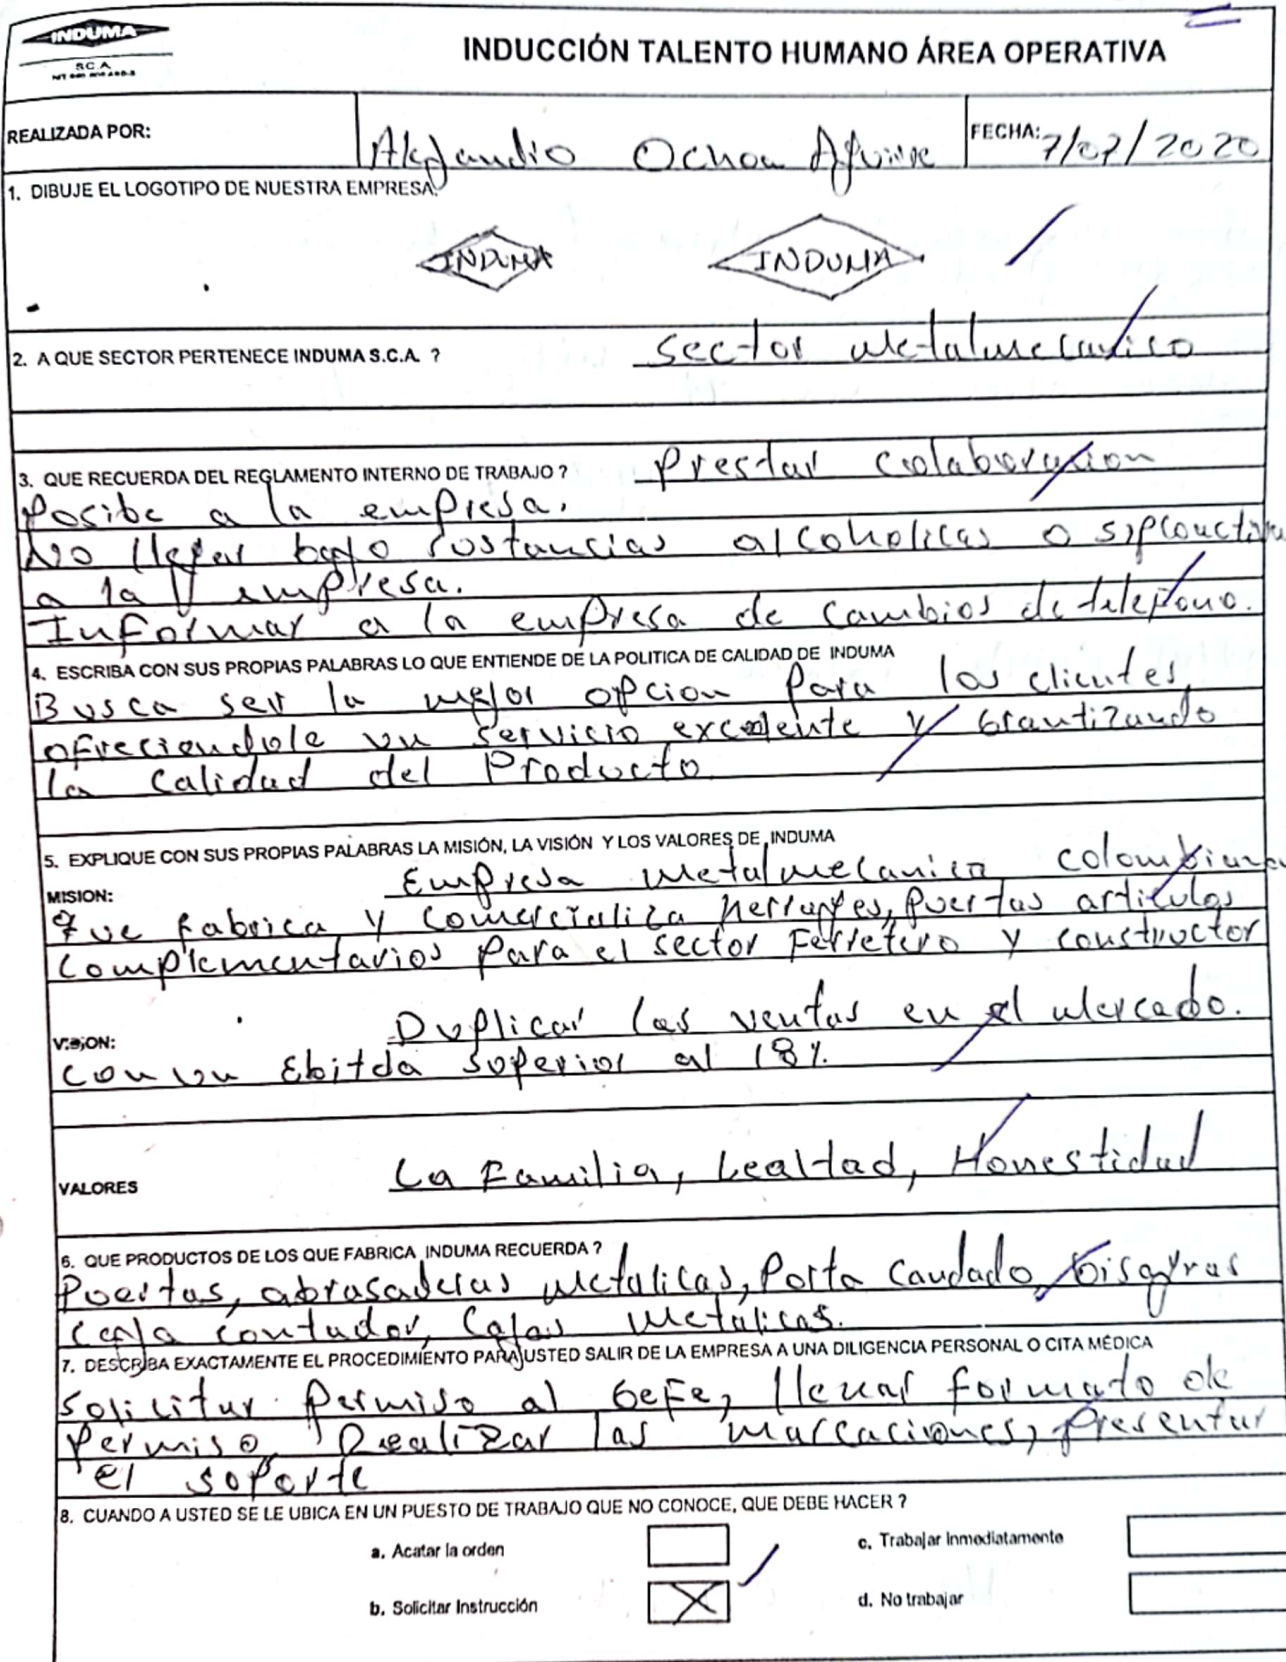 INDUMA
S.C.A.
INDUCCIÓN TALENTO HUMANO ÁREA OPERATIVA
REALIZADA POR: Alejandro Ochoa Aguirre FECHA: 7/07/2020
1. DIBUJE EL LOGOTIPO DE NUESTRA EMPRESA.
INDUMA INDUMA
2. A QUE SECTOR PERTENECE INDUMA S.C.A. ? Sector Metalmecanico
3. QUE RECUERDA DEL REGLAMENTO INTERNO DE TRABAJO ? Prestar colaboracion
Posibe a la empresa.
No llegar bajo sustancias alcoholicas o
a la empresa.
Informar a la empresa de cambios de telefono.
4. ESCRIBA CON SUS PROPIAS PALABRAS LO QUE ENTIENDE DE LA POLITICA DE CALIDAD DE INDUMA
Busca ser la mejor opcion para los clientes,
ofreciendole un servicio excelente y Grantizando
la calidad del Producto
5. EXPLIQUE CON SUS PROPIAS PALABRAS LA MISIÓN, LA VISIÓN Y LOS VALORES DE INDUMA
MISION: Empresa metalmecanica colombiana
que fabrica y comercializa herrajes, puertas articulos
complementarios para el sector Ferretero y constructor
VISION: Duplicar las ventas en el mercado.
con un Ebitda superior al 18%.
VALORES La Familia, Lealtad, Honestidad
6. QUE PRODUCTOS DE LOS QUE FABRICA INDUMA RECUERDA ?
Puertas, abrasaderas metalicas, Porta Candado, bisagras
caja contador, Cajas metalicas.
7. DESCRIBA EXACTAMENTE EL PROCEDIMIENTO PARA USTED SALIR DE LA EMPRESA A UNA DILIGENCIA PERSONAL O CITA MÉDICA
Solicitar Permiso al GeFe, llenar formato de
Permiso, Realizar las marcaciones, presentar
el soporte
8. CUANDO A USTED SE LE UBICA EN UN PUESTO DE TRABAJO QUE NO CONOCE, QUE DEBE HACER ?
a. Acatar la orden c. Trabajar Inmediatamente
b. Solicitar Instrucción X d. No trabajar